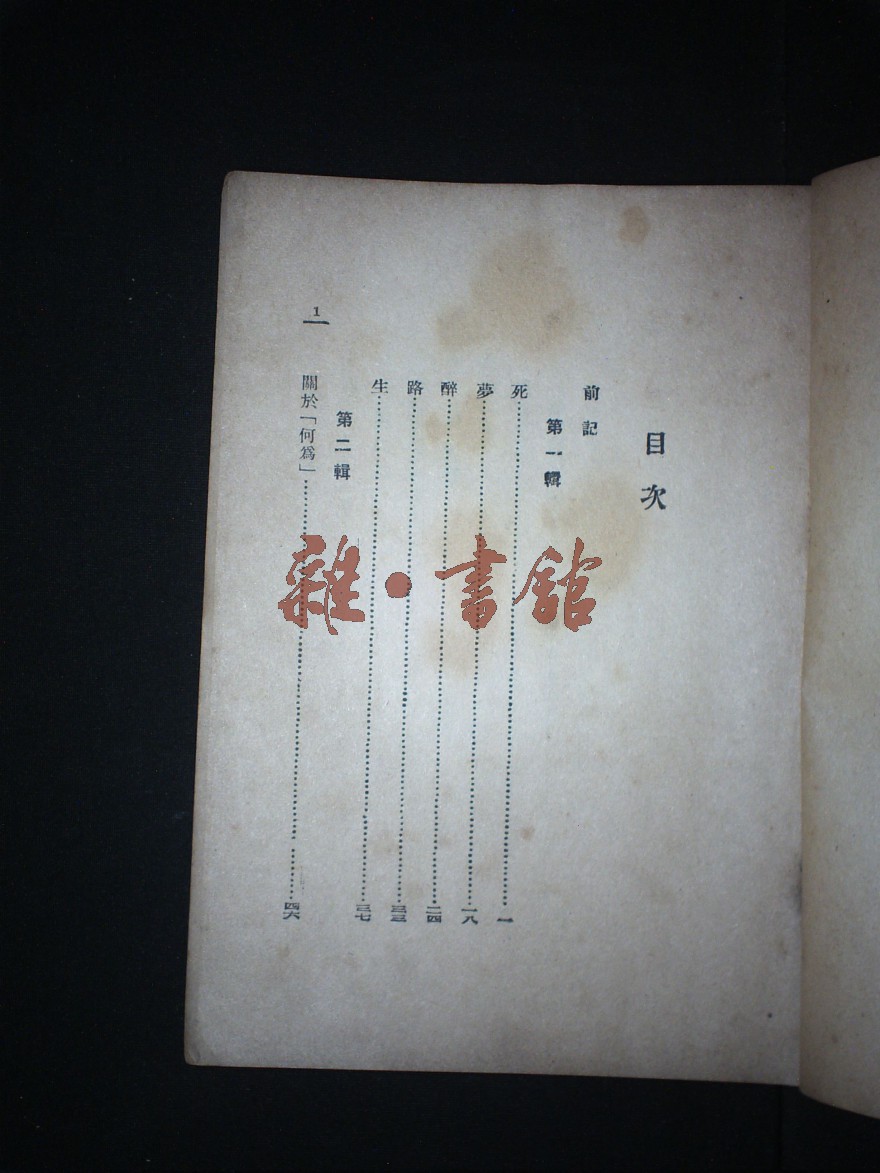 目次
前記
第一輯
死……一
夢……一八
醉……二四
路……三三
生……三七
第二輯
關於「何爲」……四六
1
雜・書館